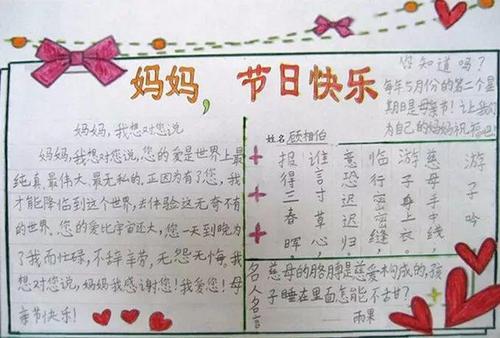 妈妈,节日快乐
您知道吗?
每年5月份的第二个星
期日是母亲节!让我们
为自己的妈妈祝福吧!
妈妈,我想对您说
妈妈,我想对您说,您的爱是世界上最
纯真、最伟大、最无私的。正因为有了您,我
才能降临到这个世界,去体验这无奇不有
的世界。您的爱比宇宙还大,您一天到晚为
了我而忙碌,不辞辛劳,无怨无悔。我
想对您说,妈妈我感谢您!我爱您!母
亲节快乐!
姓名顾相伯
游子吟。
慈母手中线,
游子身上衣。
临行密密缝,
意恐迟迟归。
谁言寸草心,
报得三春晖。
名人名言
慈母的胳膊是慈爱构成的,孩
子睡在里面怎能不甜?
雨果